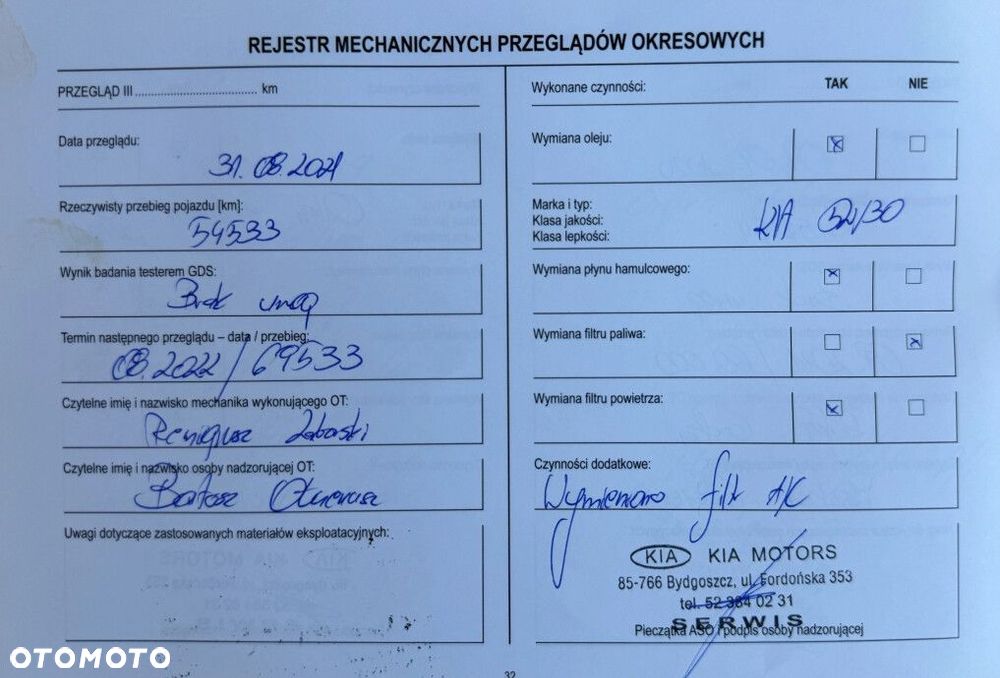 REJESTR MECHANICZNYCH PRZEGLĄDÓW OKRESOWYCH
PRZEGLĄD III .................................... km
Data przeglądu:
31.08.2021
Rzeczywisty przebieg pojazdu [km]:
54533
Wynik badania testerem GDS:
Brak uwag
Termin następnego przeglądu – data / przebieg:
08.2022 / 69533
Czytelne imię i nazwisko mechanika wykonującego OT:
Remigiusz
Czytelne imię i nazwisko osoby nadzorującej OT:
Bartosz
Uwagi dotyczące zastosowanych materiałów eksploatacyjnych:
Wykonane czynności: TAK NIE
Wymiana oleju:
Marka i typ:
Klasa jakości:
Klasa lepkości:
KIA 5W/30
Wymiana płynu hamulcowego:
Wymiana filtru paliwa:
Wymiana filtru powietrza:
Czynności dodatkowe:
Wymieniono filtr A/C
KIA KIA MOTORS
85-766 Bydgoszcz, ul. Fordońska 353
tel. 52 364 02 31
SERWIS
Pieczątka ASO i podpis osoby nadzorującej
32
OTOMOTO